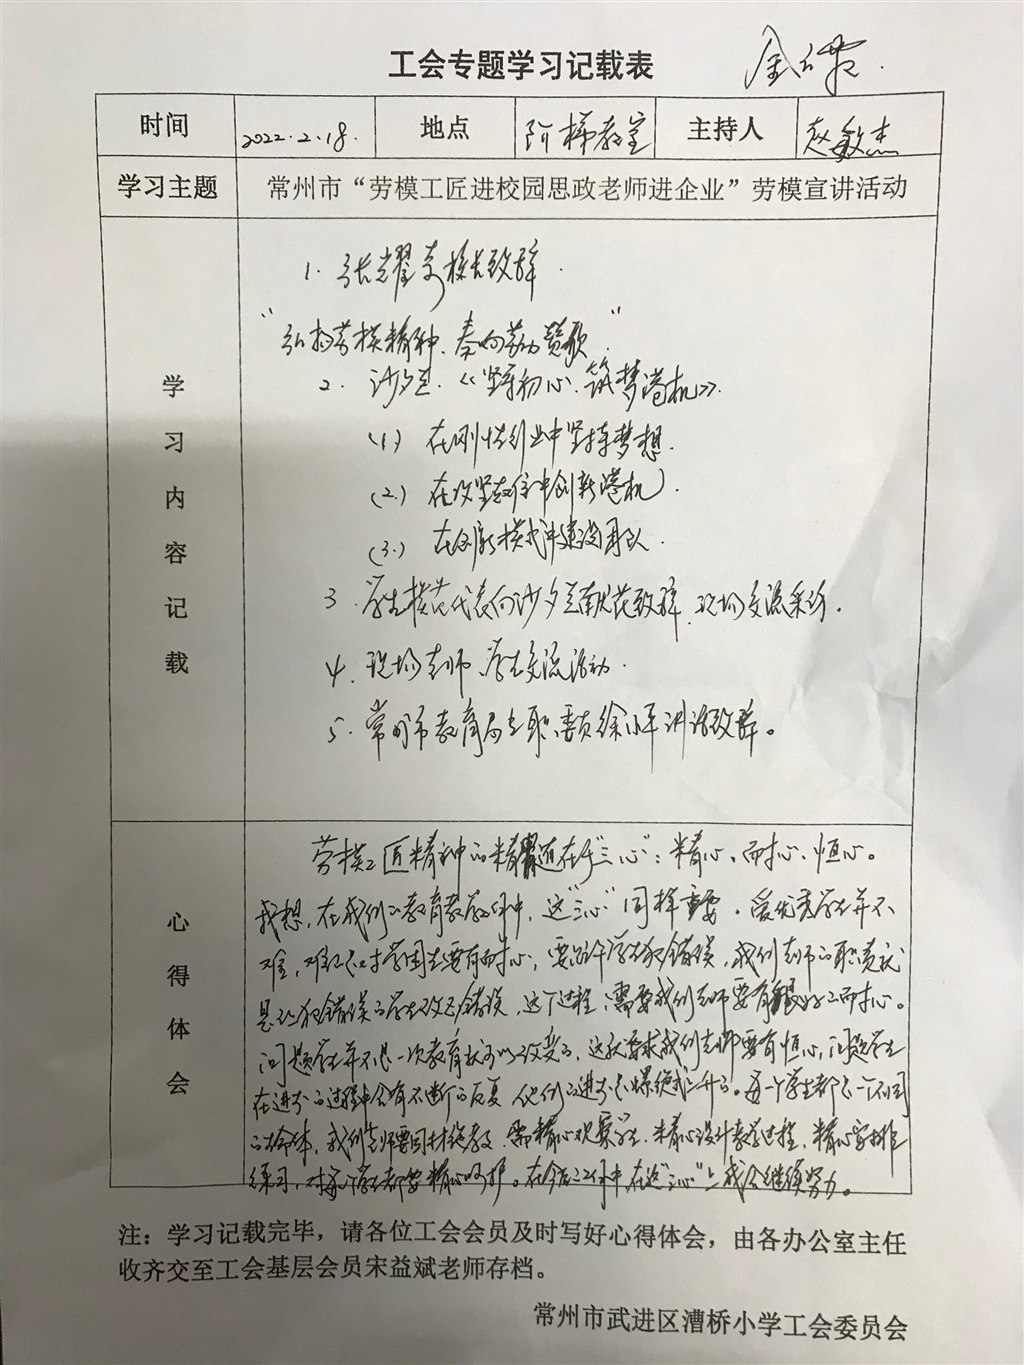 工会专题学习记载表
时间 2022.2.18. 地点 阶梯教室 主持人 赵敏杰
学习主题 常州市“劳模工匠进校园思政老师进企业”劳模宣讲活动
学习内容记载
1. 张耀奇校长致辞.
“弘扬劳模精神、奏响劳动赞歌”
2. 沙夕兰《坚守初心、筑梦港机》.
(1) 在刚性创业中坚持梦想.
(2.) 在攻坚克难中创新港机.
(3.) 在创新模式中建设团队.
3. 学生模范代表向沙夕兰献花致辞、现场交流采访.
4. 现场老师、学生交流活动.
5. 常州市教育局专职委员徐小军讲话致辞。
心得体会
劳模工匠精神的精髓在于“三心”:精心、耐心、恒心。
我想,在我们的教育教学工作中,这“三心”同样重要。爱优秀学生并不
难,难的是对学困生要有耐心,要允许学生犯错误,我们老师的职责就
是让犯错误的学生改正错误,这个过程,需要我们老师要有很好的耐心。
问题学生并不是一次教育就可以改变的,这就要求我们老师要有恒心,问题学生
在进步的过程中会有不断的反复,他们的进步不是爆绝式上升的。每一个学生都是一个不同
的个体,我们老师要因材施教,需精心观察学生、精心设计教学过程,精心安排
练习,对每个学生都要精心呵护。在今后的工作中,在这“三心”上我会继续努力。
注:学习记载完毕,请各位工会会员及时写好心得体会,由各办公室主任
收齐交至工会基层会员宋益斌老师存档。
常州市武进区漕桥小学工会委员会